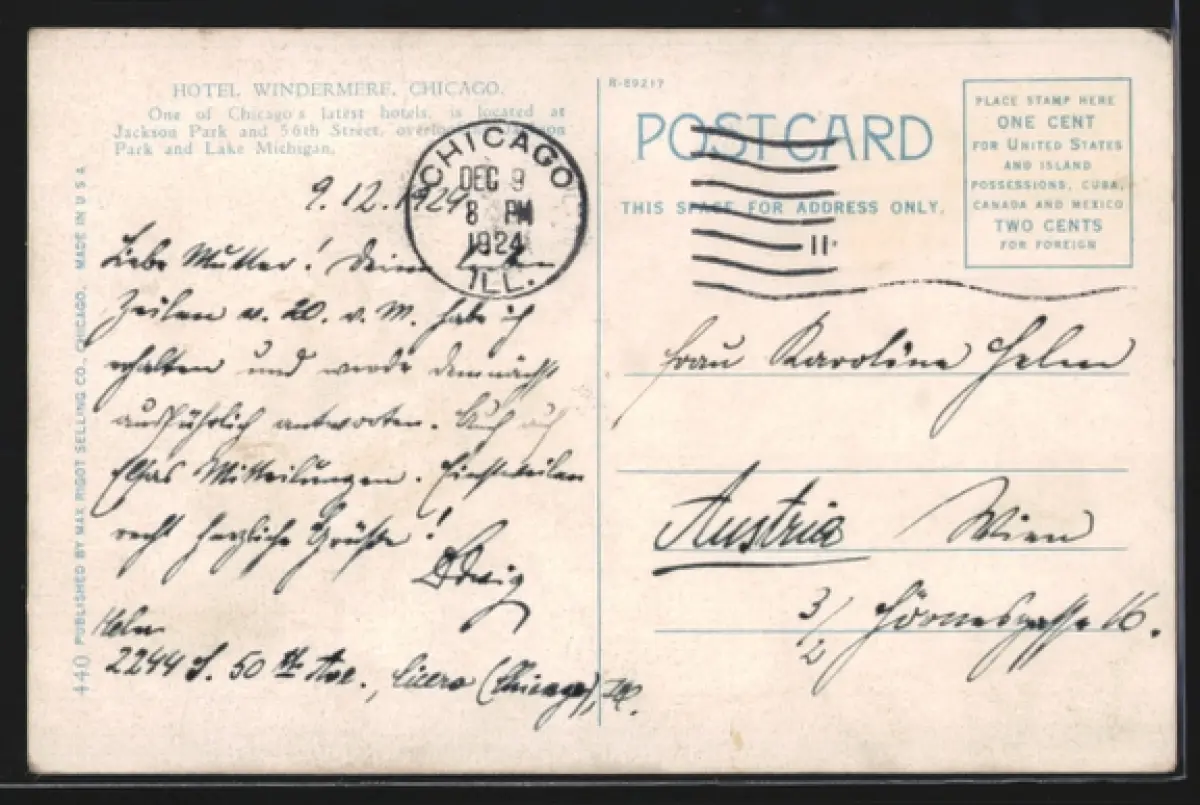 HOTEL WINDERMERE, CHICAGO.
One of Chicago's latest hotels, is located at
Jackson Park and 56th Street, overlooking Jackson
Park and Lake Michigan.
CHICAGO
DEC 9
8 PM
1924
ILL.
9.12.1924
Liebe Mutter! Deine lieben
Zeilen v. 20. v. M. habe ich
erhalten und werde demnächst
ausführlich antworten. Auch auf
Mitteilungen. Einstweilen
recht herzliche Grüße!
Helm
2244 S. 50th Ave., Cicero (Chicago), Ill.
440 PUBLISHED BY MAX RIGOT SELLING CO., CHICAGO, MADE IN U S A
R-89217
POST CARD
THIS SPACE FOR ADDRESS ONLY.
11
PLACE STAMP HERE
ONE CENT
FOR UNITED STATES
AND ISLAND
POSSESSIONS, CUBA,
CANADA AND MEXICO
TWO CENTS
FOR FOREIGN
Frau Karoline Helm
Austria Wien
3/2 Hörnesgasse 16.